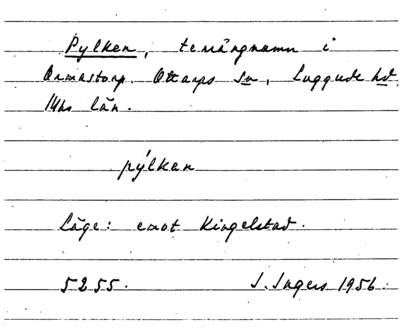 Pylken, terrängnamn i
Ormastorp. Ottarps sn, Luggude hd.
Mhs län.
pýlken
Läge: emot Kingelstad.
5255. I. Ingers 1956.